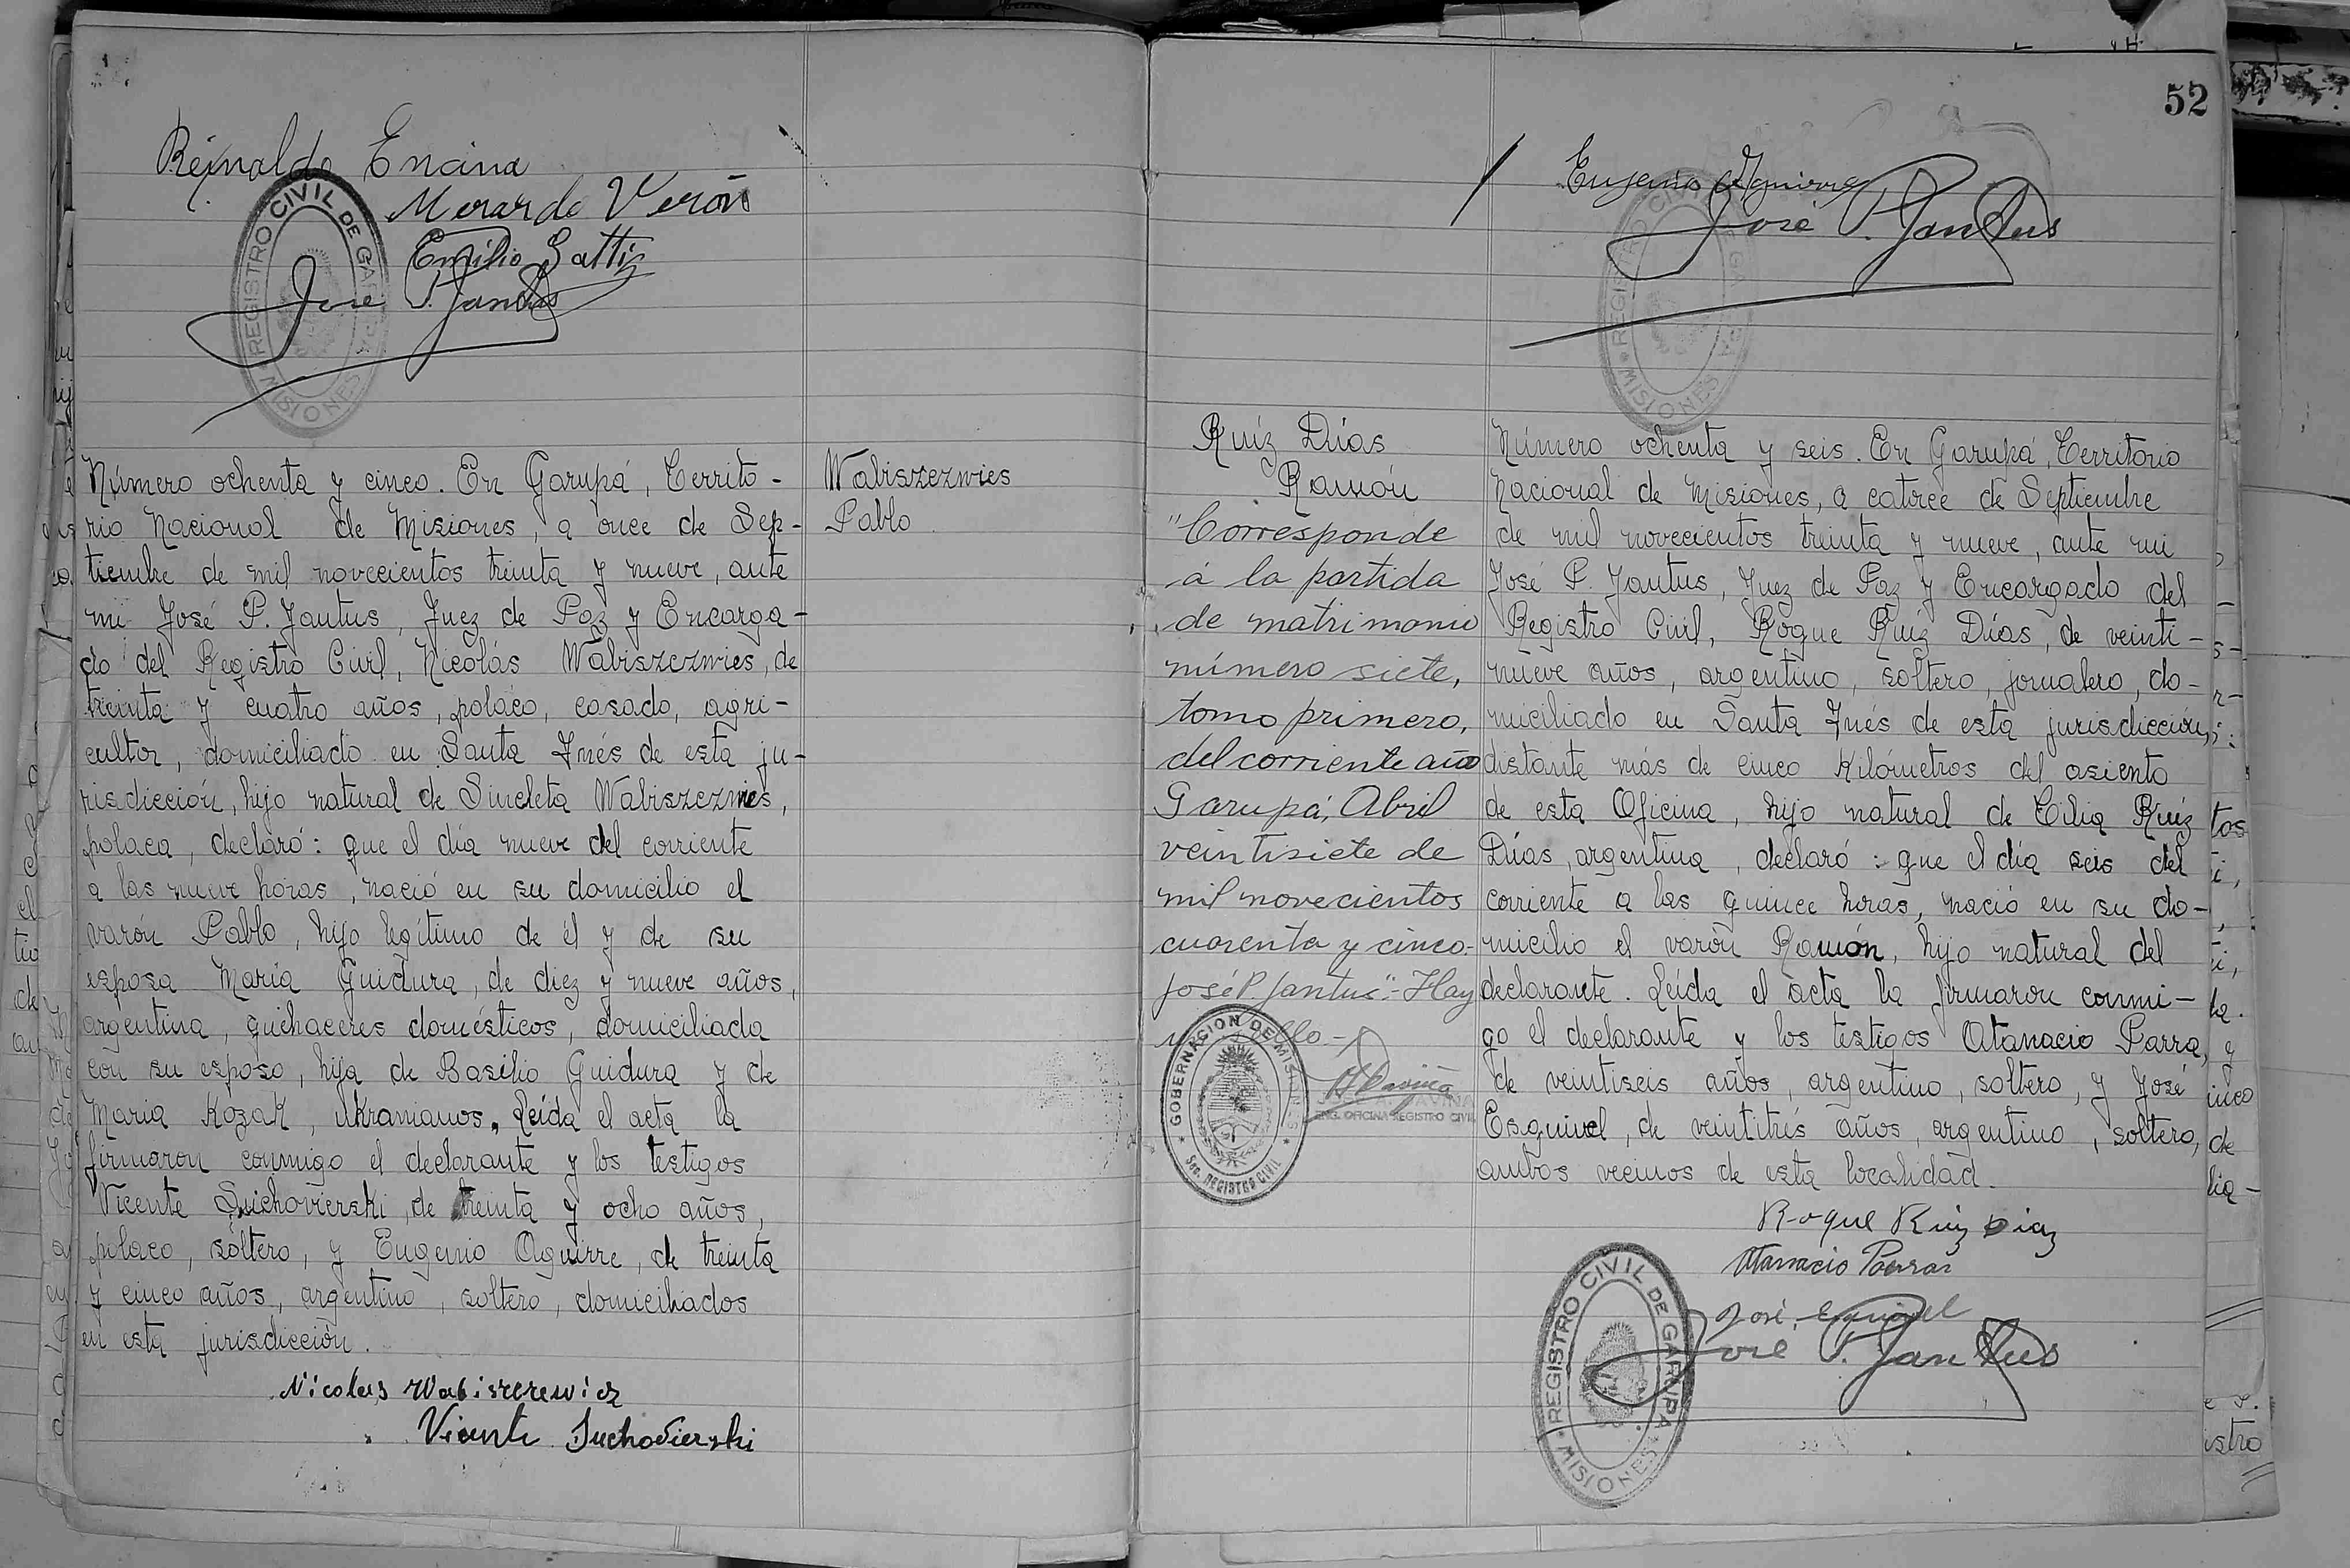 Reinaldo Encina
Merardo Verón
Emilio Gatti
José P. Jantus
REGISTRO CIVIL DE GARUPA
MISIONES
Número ochenta y cinco. En Garupá, Territo-
rio Nacional de Misiones, a once de Sep-
tiembre de mil novecientos treinta y nueve, ante
mi José P. Jantus, Juez de Paz y Encarga-
do del Registro Civil, Nicolás Wabiszezwies, de
treinta y cuatro años, polaco, casado, agri-
cultor, domiciliado en Santa Inés de esta ju-
risdicción, hijo natural de Sincleta Wabiszezwies,
polaca, declaró: que el día nueve del corriente
a las nueve horas, nació en su domicilio el
varón Pablo, hijo legítimo de él y de su
esposa María Guidura, de diez y nueve años,
argentina, quehaceres domésticos, domiciliada
con su esposo, hija de Basilio Guidura y de
Maria Kozak, ukranianos. Leída el acta la
firmaron conmigo el declarante y los testigos
Vicente Suchovierski, de treinta y ocho años,
polaco, soltero, y Eugenio Aguirre, de treinta
y cinco años, argentino, soltero, domiciliados
en esta jurisdicción.
Nicolas Wabiszerewicz
Vicente Suchovierski
Wabiszezwies
Pablo
52
Eugenio Aguirre
José P. Jantus
REGISTRO CIVIL DE GARUPA
MISIONES
Ruíz Días
Ramón
"Corresponde
á la partida
de matrimonio
número siete,
tomo primero,
del corriente año
Garupá, Abril
veintisiete de
mil novecientos
cuarenta y cinco.-
José P. Jantus".- Hay
un sello.-
GOBERNACION DE MISIONES
Sec. REGISTRO CIVIL
ENC. OFICINA REGISTRO CIVIL
Número ochenta y seis. En Garupá, Territorio
Nacional de Misiones, a catorce de Septiembre
de mil novecientos treinta y nueve, ante mi
José P. Jantus, Juez de Paz y Encargado del
Registro Civil, Roque Ruíz Días, de veinti-
nueve años, argentino, soltero, jornalero, do-
miciliado en Santa Inés de esta jurisdicción,
distante más de cinco kilómetros del asiento
de esta Oficina, hijo natural de Cilia Ruíz
Días, argentina, declaró: que el día seis del
corriente a las quince horas, nació en su do-
micilio el varón Ramón, hijo natural del
declarante. Leída el acta la firmaron conmi-
go el declarante y los testigos Atanacio Parra,
de veintiseis años, argentino, soltero, y José
Esquivel, de veintitrés años, argentino, soltero,
ambos vecinos de esta localidad.
Roque Ruiz Diaz
Atanacio Parra
José Esquivel
José P. Jantus
REGISTRO CIVIL DE GARUPA
MISIONES